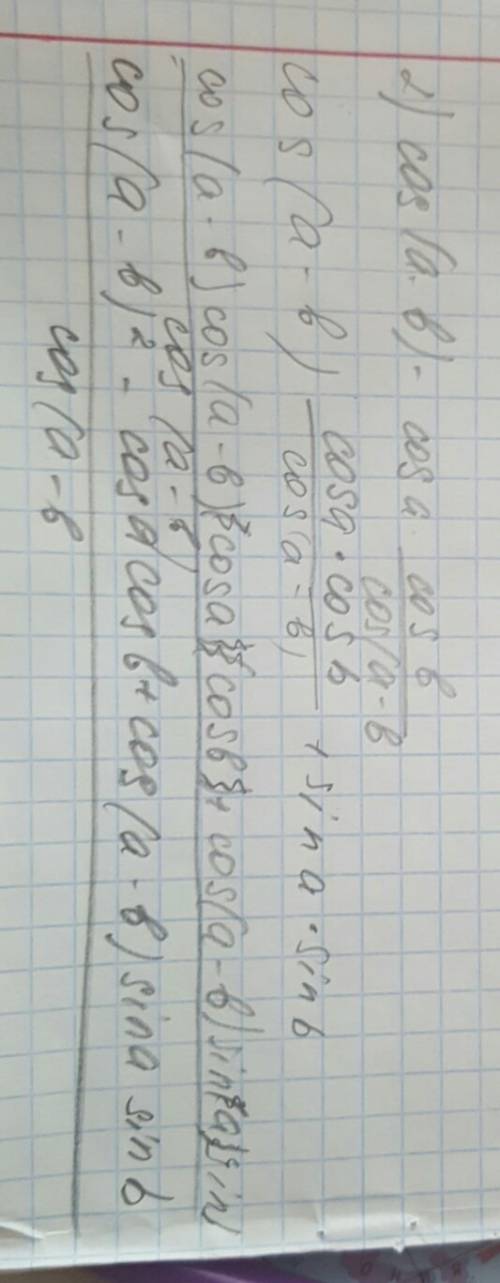 2) cos(a-b) - cos a cos b / cos(a-b
cos(a-b) - cosa·cosb / cos(a-b) + sina·sinb
cos(a-b)cos(a-b)-cosa cosb + cos(a-b)sina sin / cos(a-b)
cos(a-b)² - cosa cosb + cos(a-b)sina sinb / cos(a-b